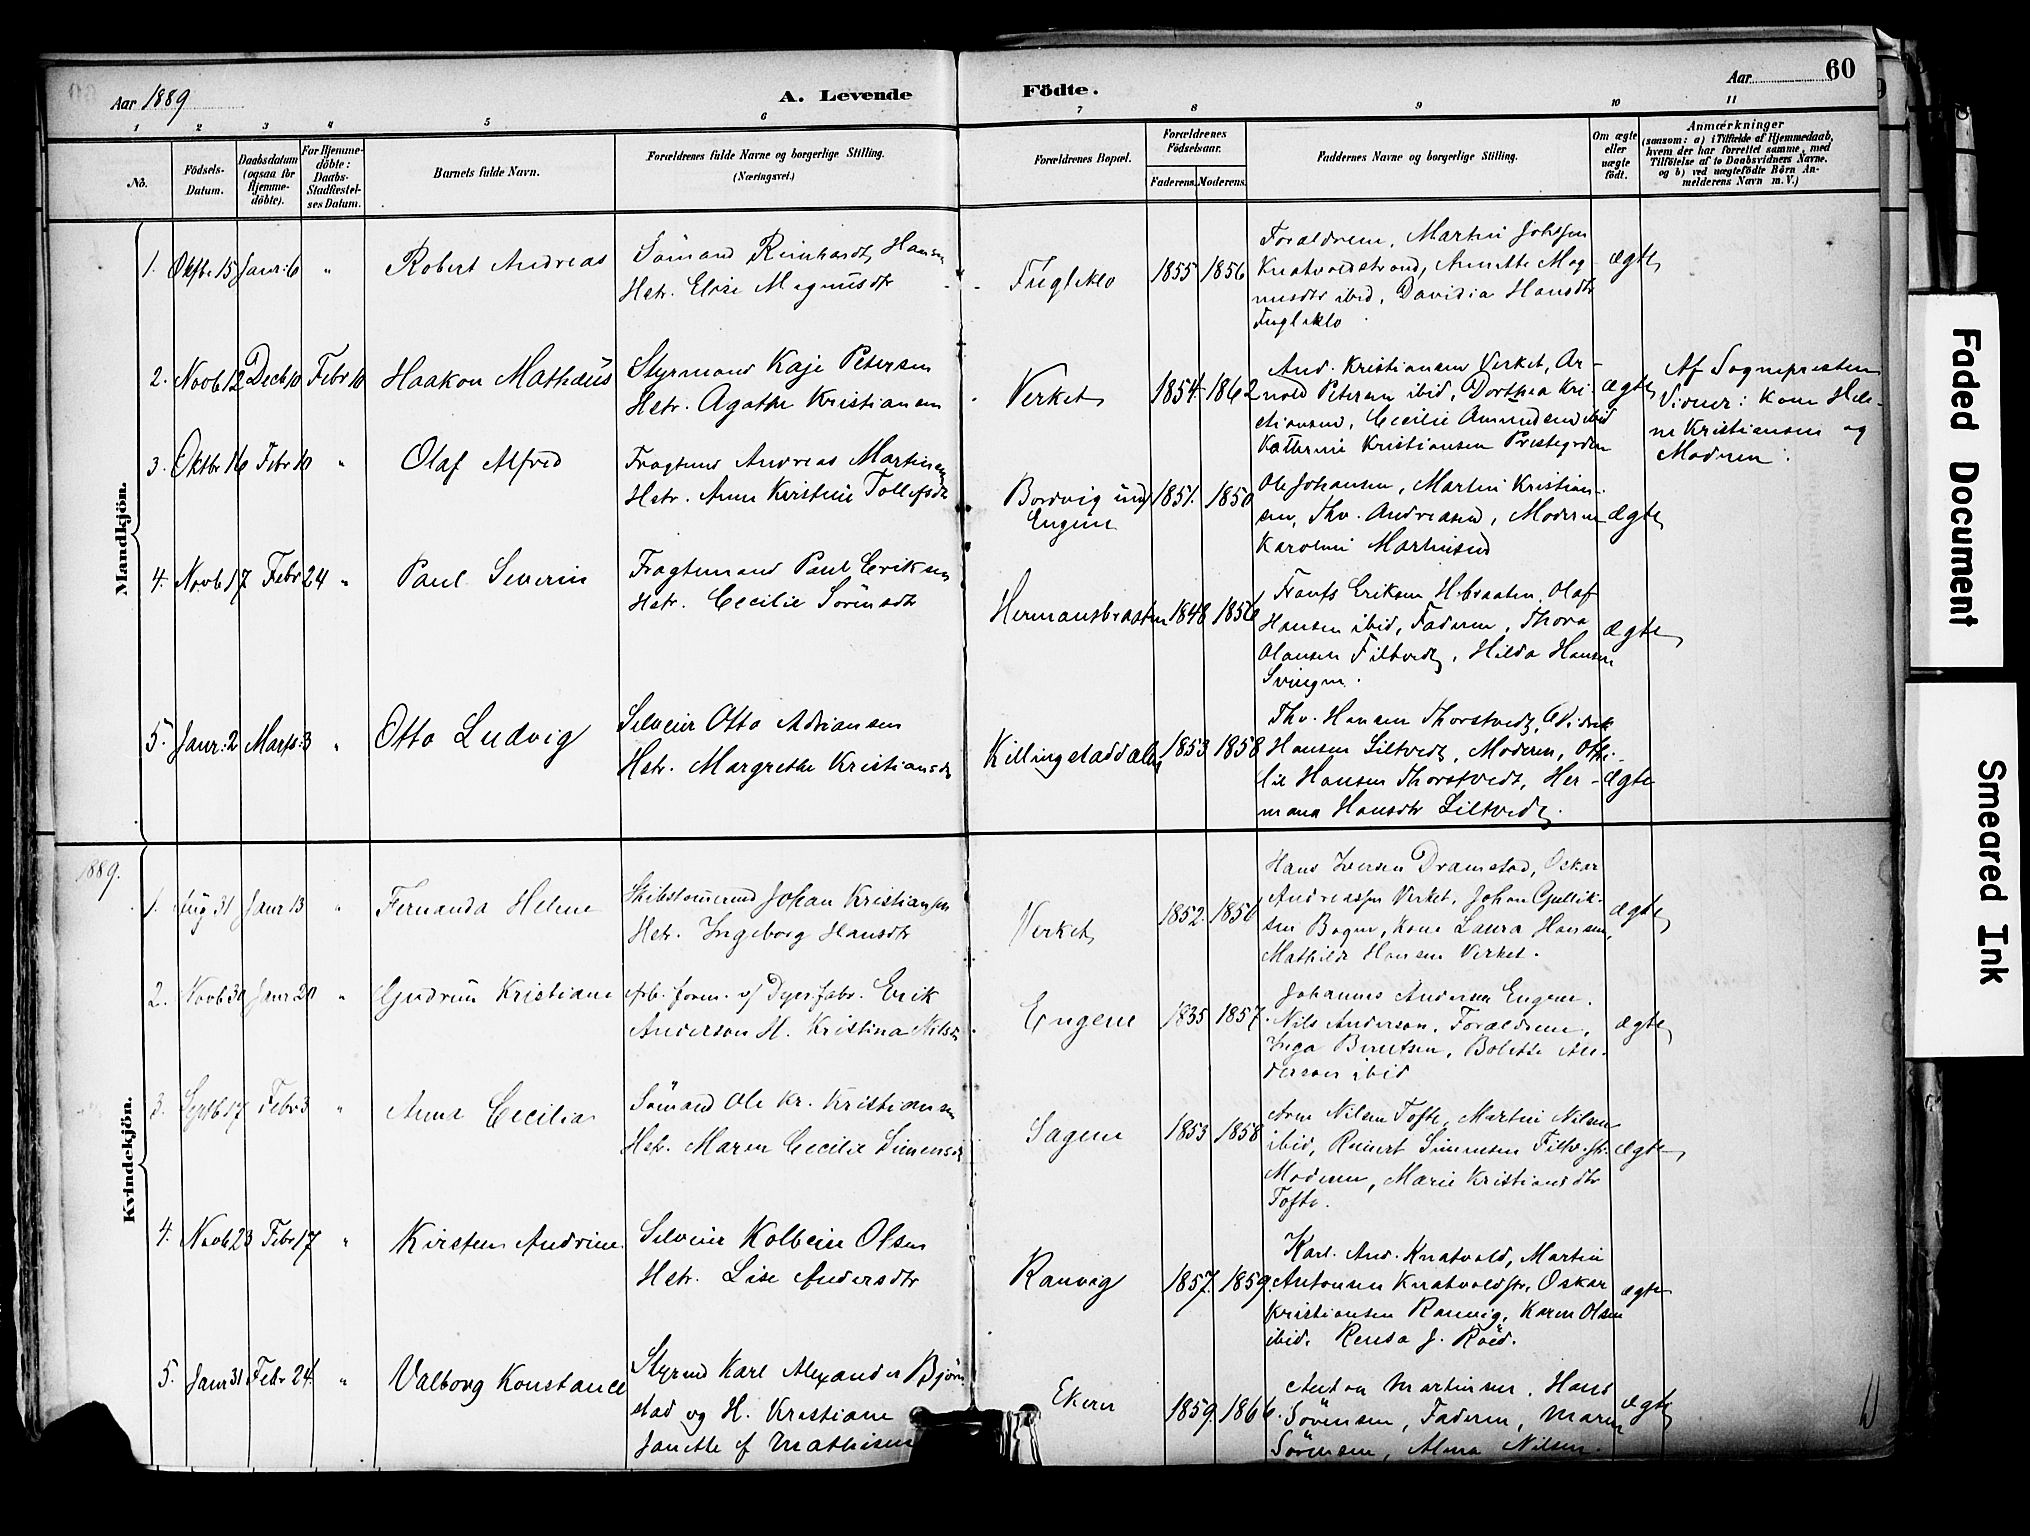 Aar 1889
A. Levende
Födte.
Aar
60
1 2 3 4 5 6 7 8 9 10 11
No.
Födsels-
Datum.
Daabsdatum
(ogsaa for
Hjemme-
döbte).
For Hjemme-
döbte:
Daabs-
Stadfæstel-
ses Datum.
Barnets fulde Navn.
Forældrenes fulde Navne og borgerlige Stilling.
(Næringsvei.)
Forældrenes Bopæl.
Forældrenes
Födselsaar.
Faderens. Moderens.
Faddernes Navne og borgerlige Stilling.
Om ægte
eller
uægte
födt.
Anmærkninger
(saasom: a) i Tilfælde af Hjemmedaab,
hvem der har forrettet samme, med
Tilföielse af to Daabsvidners Navne.
og b) ved uægtefödte Börn An-
melderens Navn m. V.)
Mandkjön.
1. Oktbr 15 Janr: 6 " Robert Andreas
Sömand Reinhardt Hansen
Hstr. Elise Magnusdtr
Fugleklo 1855 1856
Forældrene, Martin Johsen
Knatvoldstrand, Annette Mag-
nusdtr ibid, Davidia Hansdtr
Fugleklo
ægte
2. Novb 12 Decb 10 Febr 10 Haakon Mathæus
Styrmand Kaje Petersen
Hstr. Agathe Kristiansen
Verket 1854 1862
And. Kristiansen Verket, Ar-
nold Petersen ibid, Dorthea Kri-
stiansen, Cecilie Amundsen ibid
Kathrine Kristiansen Prestegrden
ægte
Af Sognepresten
Vidner: Kone Hele-
ne Kristiansen og
Modren.
3. Oktbr 16 Febr 10 " Olaf Alfred
Fragtmd Andreas Martinsen
Hstr. Anne Kirstine Tollefsdtr
Bordvig und
Engene
1851. 1850
Ole Johansen, Martin Kristian-
sen, Thv. Andreasen, Moderen
Karoline Martinsen
ægte
4. Novb 17 Febr 24 " Paul Severin
Fragtemand Paul Eriksen
Hstr. Cecilie Sörensdtr
Hermansbraaten 1848 1856
Frants Eriksen H.braaten, Olaf
Hansen ibid, Faderen, Thora
Olausen Filtvedt, Hilda Hansen
Svingen.
ægte
5. Janr: 2 Marts: 3 " Otto Ludvig
Selveier Otto Adriansen
Hstr. Margrethe Kristiansdtr
Killingstaddalen 1853 1858
Thv. Hansen Thorstvedt, Didrik
Hansen Siltvedt, Moderen, Othi-
lie Hansen Thorstvedt, Her-
mana Hansdtr Siltvedt.
ægte
1889.
Kvindekjön.
1. Aug 31 Janr 13 " Fernanda Helene
Skibstömmermd Johan Kristiansen
Hstr. Ingeborg Hansdtr
Verket 1852. 1856
Hans Iversen Dramstad, Oskar
Andreassen Verket, Johan Gullik-
sen Bogen, Kone Laura Hansen,
Mathilde Hansen Verket.
ægte
2. Novb 30 Janr 20 " Gudrun Kristiane
Arb. form. v/ Dyn.fabr. Erik
Anderson H. Kristina Nilsen
Engene 1835 1857.
Johannes Andersen Engene.
Nils Anderson, Forældrene,
Inga Berntsen, Bolette An-
derson ibid
ægte
3. Septb 17 Febr 3 " Anna Cecilia
Sömand Ole Kr. Kristiansen
Hstr. Maren Cecilie Simensdtr
Sagene 1853 1858
Arne Nilsen Tofte, Martin Nilsen
ibid, Reinert Simensen Filtv.str.
Moderen, Marie Kristiansdtr
Tofte.
ægte
4. Novb 23 Febr 17 " Kirsten Andrine
Selveier Kolbein Olsen
Hstr. Lise Andersdtr
Ranvig 1857. 1859.
Karl. And. Knatvold, Martin
Antonsen Knatvoldstr, Oskar
Kristiansen Ranvig, Karen Olsen
ibid, Rensa J. Röed.
ægte
5. Janr 31 Febr 24. " Valborg Konstance
Styrmd Karl Alexander Björn
stad og H. Kristiane
Janette f Mathisen
Ekern 1859. 1866.
Anton Martinsen, Hans
Sörensen, Faderen, Maren
Sörensen, Alma Nilsen.
ægte
Faded Document
Smeared Ink